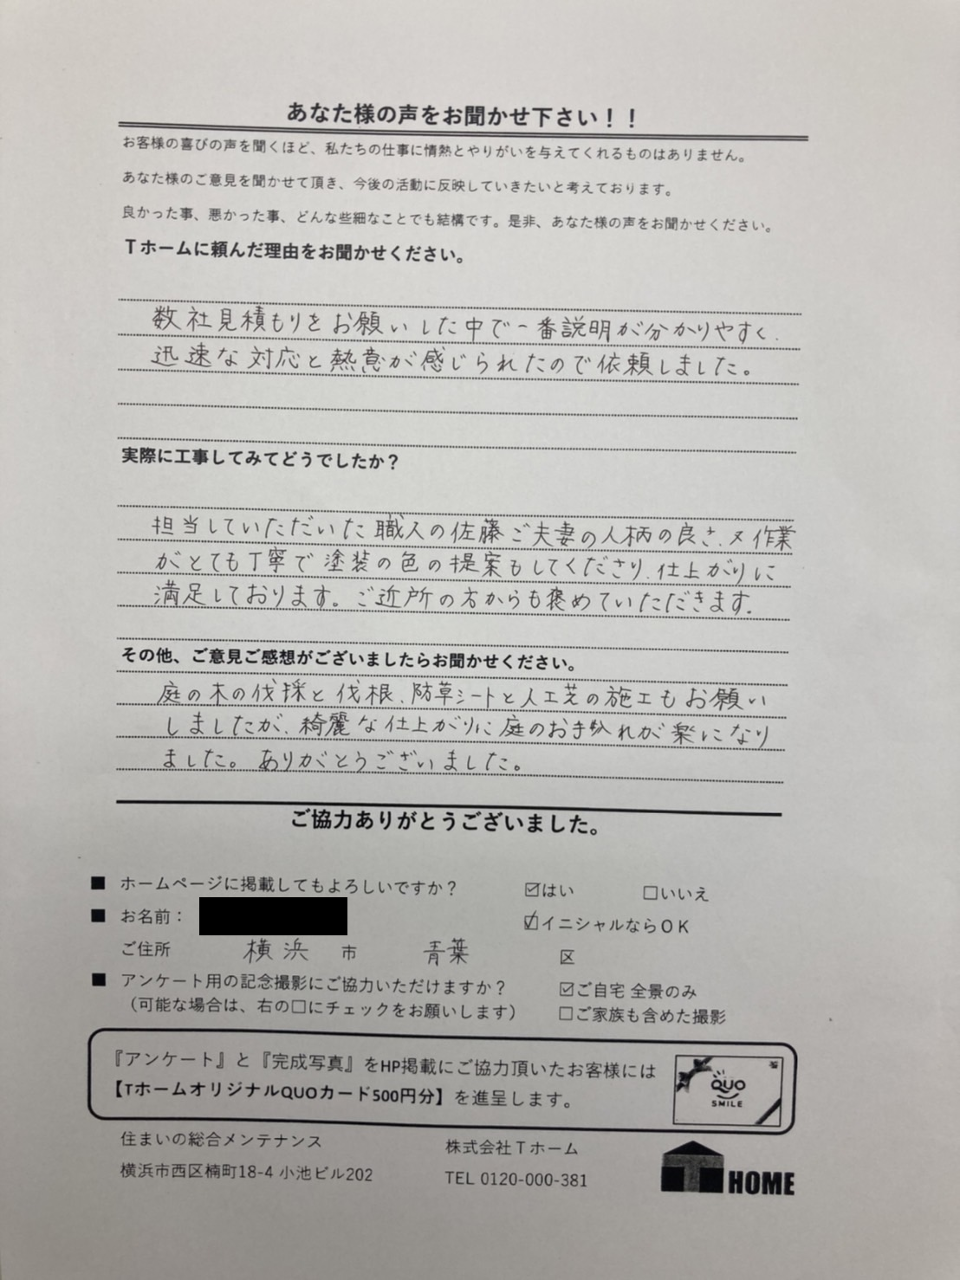 あなた様の声をお聞かせ下さい！！
お客様の喜びの声を聞くほど、私たちの仕事に情熱とやりがいを与えてくれるものはありません。
あなた様のご意見を聞かせて頂き、今後の活動に反映していきたいと考えております。
良かった事、悪かった事、どんな些細なことでも結構です。是非、あなた様の声をお聞かせください。
Ｔホームに頼んだ理由をお聞かせください。
数社見積もりをお願いした中で一番説明が分かりやすく、
迅速な対応と熱意が感じられたので依頼しました。
実際に工事してみてどうでしたか？
担当していただいた職人の佐藤ご夫妻の人柄の良さ、又作業
がとても丁寧で塗装の色の提案もしてくださり、仕上がりに
満足しております。ご近所の方からも褒めていただきます。
その他、ご意見ご感想がございましたらお聞かせください。
庭の木の伐採と伐根、防草シートと人工芝の施工もお願い
しましたが、綺麗な仕上がりに庭のお手入れが楽になり
ました。ありがとうございました。
ご協力ありがとうございました。
■ ホームページに掲載してもよろしいですか？ ☑はい □いいえ
■ お名前： ☑イニシャルならＯＫ
ご住所 横浜 市 青葉 区
■ アンケート用の記念撮影にご協力いただけますか？ ☑ご自宅 全景のみ
（可能な場合は、右の□にチェックをお願いします） □ご家族も含めた撮影
『アンケート』と『完成写真』をHP掲載にご協力頂いたお客様には
【TホームオリジナルQUOカード500円分】を進呈します。
QUO
SMILE
住まいの総合メンテナンス 株式会社Ｔホーム
横浜市西区楠町18-4 小池ビル202 TEL 0120-000-381
T HOME